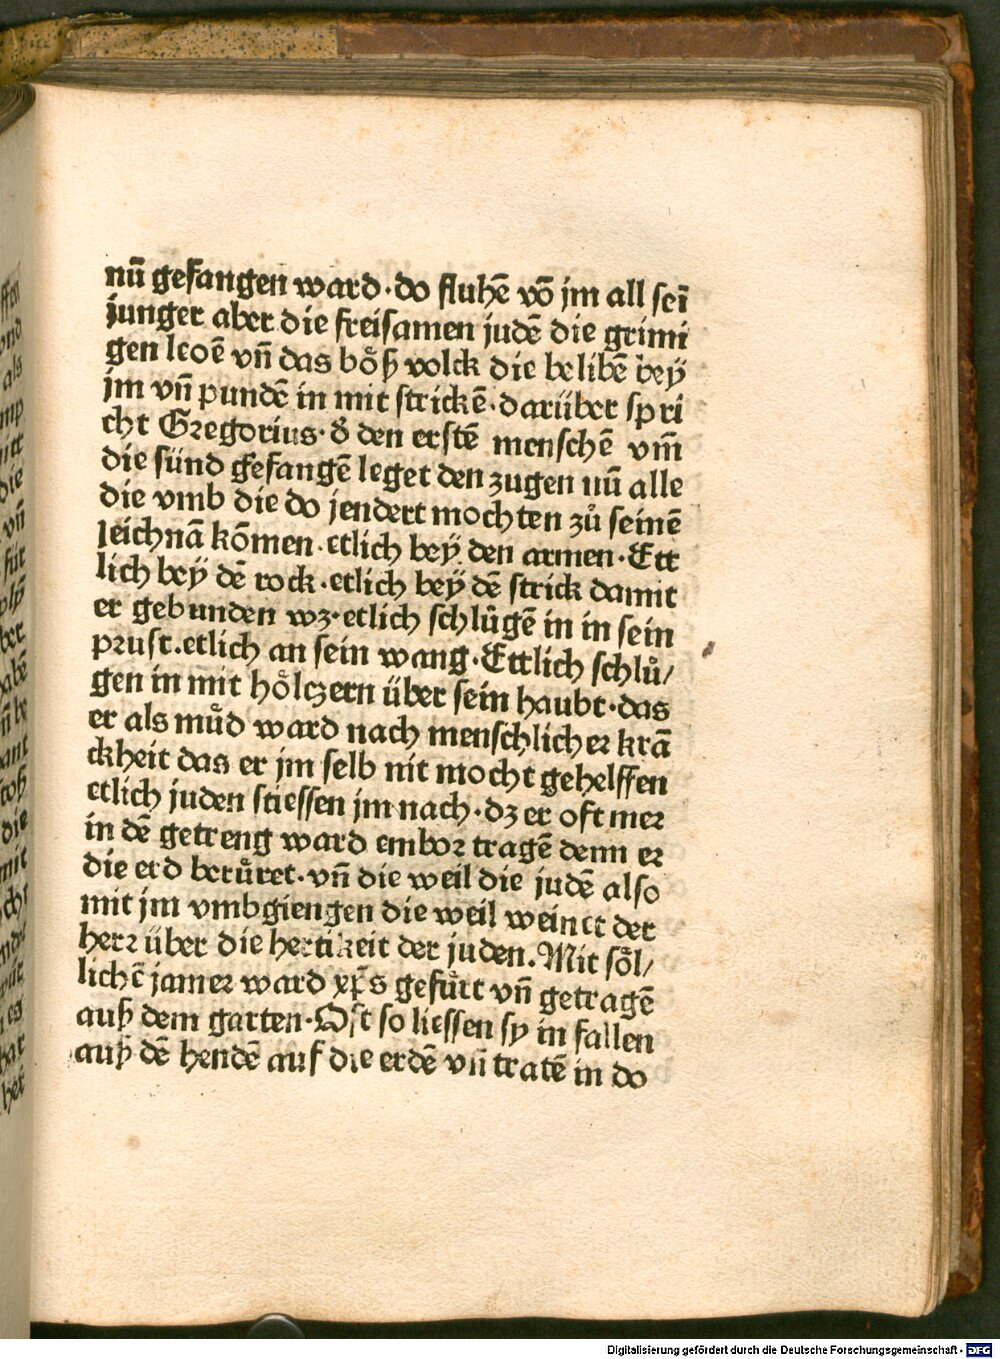 nū gefangen ward·do fluhē vō jm all seī
junger aber die freisamen judē die grimi
gen leoē vn̄ das bo̊ß volck die belibē bey
jm vn̄ pundē in mit strickē·darüber spri
cht Gregorius·d̓ den erstē menschē vm̄
die sünd gefangē leget den zugen nū alle
die vmb die do jendert mochten zů seinē
leichnā kōmen·etlich bey den armen·Ett
lich bey dē rock·etlich bey dē strick damit
er gebunden wz·etlich schlůgē in in sein
prust.etlich an sein wang·Ettlich schlů/
gen in mit ho̊lczern über sein haubt·das
er als můd ward nach menschlicher krā
ckheit das er jm selb nit mocht gehelffen
etlich juden stiessen jm nach·dz er oft mer
in dē getreng ward embor tragē denn er
die erd berůret·vn̄ die weil die judē also
mit jm vmbgiengen die weil weinet der
herr über die hertikeit der juden.Mit so̊l/
lichē jamer ward xp̄s gefůrt vn̄ getragē
auß dem garten·Oft so liessen sy in fallen
auß dē hendē auf die erdē vn̄ tratē in do
Digitalisierung gefördert durch die Deutsche Forschungsgemeinschaft - DFG